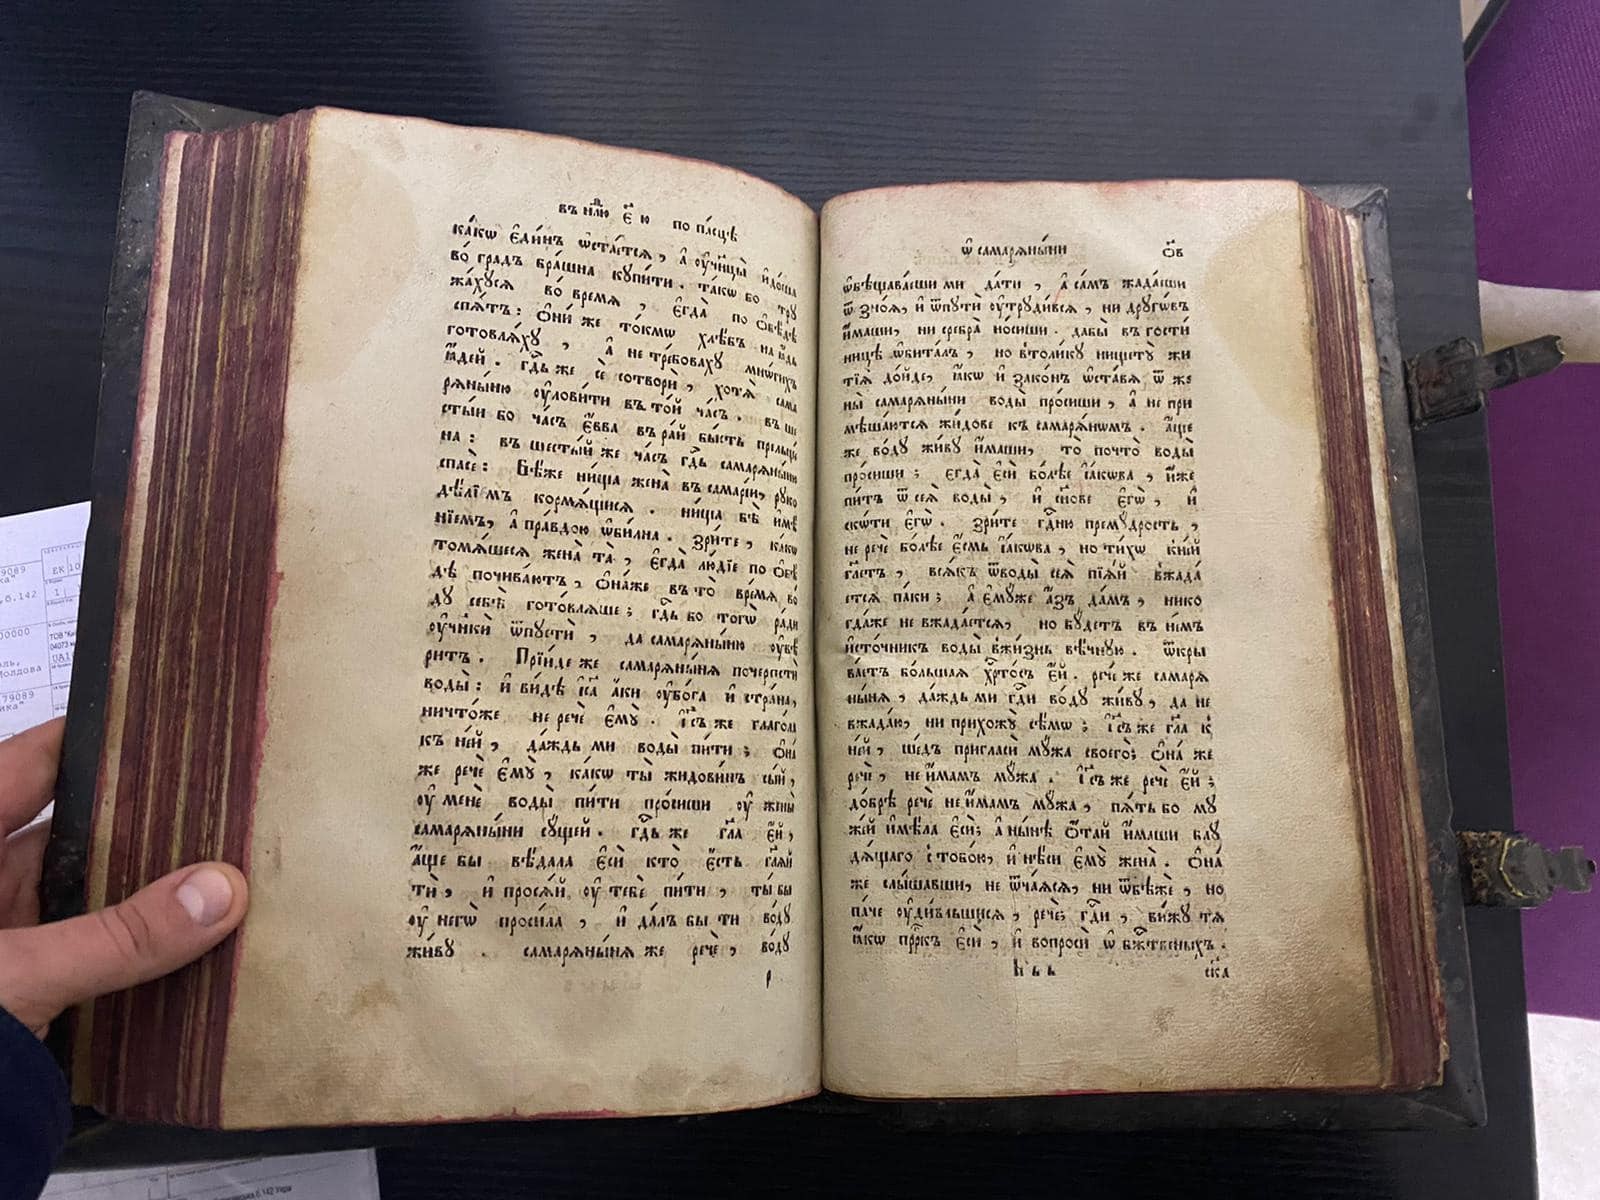 въ нлⷣю є҃ ю по па́сцѣ
ка́кѡ є҆ди́нъ ѡ҆ста́етсѧ, а҆ ѹ҆чн҃цы̀ и҆до́ша
во́ градъ бра́шна кꙋпи́ти. та́кѡ бо трꙋ
жа́хꙋсѧ во́ времѧ, є҆гда̀ по ѻ҆бѣ́дѣ
спѧ́тъ: ѻ҆ни́ же то́кмѡ хлѣ́бъ на ꙗ҆́дь
готовлѧ́хꙋ, а҆ не тре́бовахꙋ мно́гихъ
ꙗ҆де́й. гдⷭ҇ь же сѐ сотворѝ, хотѧ̀ сама
рѧны́ню ѹ҆лови́ти въ то́й ча́съ. въ ше
сты́й бо ча́съ є҆́вва въ ра́й бы́сть прельще
на̀: въ шесты́й же ча́съ гдⷭ҇ь самарѧны́ню
спасѐ: Бѣ́ же ни́ща жена̀ въ самарі́и, рꙋко
дѣ́лїемъ кормѧ́щисѧ. ни́ща бѣ̀ и҆мѣ́
нїемъ, а҆ пра́вдою ѡ҆би́лна. зри́те, ка́кѡ
томѧ́шесѧ жена̀ та̀, є҆гда̀ лю́дїе по ѻ҆бѣ́
дѣ почива́ютъ, ѻ҆на́же въ то̀ вре́мѧ во
дꙋ̀ себѣ̀ гото́влѧше; гдⷭ҇ь бо тогѡ̀ ра́ди
ѹ҆чн҃кѝ ѿпꙋстѝ, да самарѧны́ню ѹ҆вѣ
ри́тъ. Прїи́де же самарѧны́нѧ почерпстѝ
воды̀: и҆ ви́дѣ і҆са а҆́ки ѹ҆бо́га и҆ стра́нна,
ничто́же не речѐ є҆мꙋ̀. І҆с҃ъ же глаго́ла
къ не́й, да́ждь ми воды̀ пи́ти; ѻ҆на̀
же речѐ є҆мꙋ̀, ка́кѡ ты̀ жидови́нъ сы́й,
ѹ҆ менѐ воды̀ пи́ти про́сиши ѹ҆ жены̀
самарѧны́ни сꙋ́щей. гдⷭ҇ь же гл҃а є҆́й,
а҆́ще бы вѣ́дала є҆сѝ кто̀ є҆́сть гл҃ѧй
тѝ, и҆ просѧ́й ѹ҆ тебѐ пи́ти, ты̀ бы
ѹ҆ негѡ̀ проси́ла, и҆ да́лъ бы ти во́дꙋ
жи́вꙋ. самарѧны́нѧ же речѐ, во́дꙋ
ѡ҆ самарѧны́ни ѻ҃в
ѡ҆бѣщава́еши ми да́ти, а҆ са́мъ жада́еши
ѿ зно́ѧ, и҆ ѿпꙋтѝ ѹ҆трꙋди́всѧ, ни дрꙋгѡ́въ
и҆́маши, ни сребра̀ но́сиши. дабы̀ въ гости́
ницѣ ѡ҆бита́лъ, но в то́ликꙋ нищетꙋ̀ жи
тїѧ̀ до́йде, ꙗ҆́кѡ и҆ зако́нъ ѡ҆ста́вѧ ѿ же
ны̀ самарѧны́ни воды̀ про́сиши, а҆ не при
мѣша́ютсѧ жи́дове къ самарѧ́нѡмъ. а҆́ще
же во́дꙋ жи́вꙋ и҆́маши, то̀ почто̀ воды̀
про́сиши; є҆гда̀ є҆сѝ бо́лѣе і҆а́кова, и҆́же
пи́тъ ѿ сеѧ̀ воды̀, и҆ сн҃ове є҆гѡ̀, и҆
ско́ти є҆гѡ̀. Зри́те гдⷭ҇ню премꙋ́дрость,
не речѐ бо́лѣе є҆́смь і҆а́кова, но ти́хѡ к не́й
гл҃етъ, всѧ́къ ѿводы̀ сеѧ̀ пїѧ́й вжада́
етсѧ па́ки; а҆ є҆мꙋ́же а҆́зъ да́мъ, нико
гда́же не вжада́етсѧ, но бꙋ́детъ въ не́мъ
и҆сто́чникъ воды̀ вжи́знь вѣ́чнꙋю. ѿкры
ва́етъ бо́льшаѧ хрⷭ҇то́съ є҆́й. речѐ же самарѧ
ны́нѧ, да́ждь ми гдⷭ҇и во́дꙋ жи́вꙋ, да не
вжада́ю, ни прихожꙋ̀ сѣ́мѡ; І҆с҃ъ же гл҃а к
не́й, ше́дъ пригласѝ мꙋ́жа своего̀; ѻ҆на́ же
речѐ, не и҆́мамъ мꙋ́жа. І҆с҃ъ же речѐ є҆́й;
до́брѣ речѐ не и҆́мамъ мꙋ́жа, пѧ́ть бо мꙋ
же́й и҆мѣ́ла є҆сѝ; а҆ ны́нѣ ѻ҆та́й и҆́маши блꙋ
дѧ́щаго с тобо́ю, и҆ нѣ́си є҆мꙋ̀ жена̀. ѻ҆на́
же слы́шавши, не ѿча́ѧсѧ, ни ѿбѣ́же, но
па́че ѹ҆диви́вшисѧ, речѐ; гдⷭ҇и, ви́жꙋ тѧ
ꙗ҆́кѡ прⷪ҇ро́къ є҆сѝ, и҆ вопросѝ ѡ҆ бжⷭ҇твеныхъ.